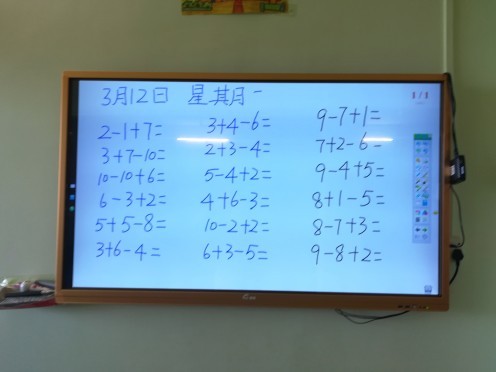 3月12日 星期一
1/1
2-1+7=
3+7-10=
10-10+6=
6-3+2=
5+5-8=
3+6-4=
3+4-6=
2+3-4=
5-4+2=
4+6-3=
10-2+2=
6+3-5=
9-7+1=
7+2-6=
9-4+5=
8+1-5=
8-7+3=
9-8+2=